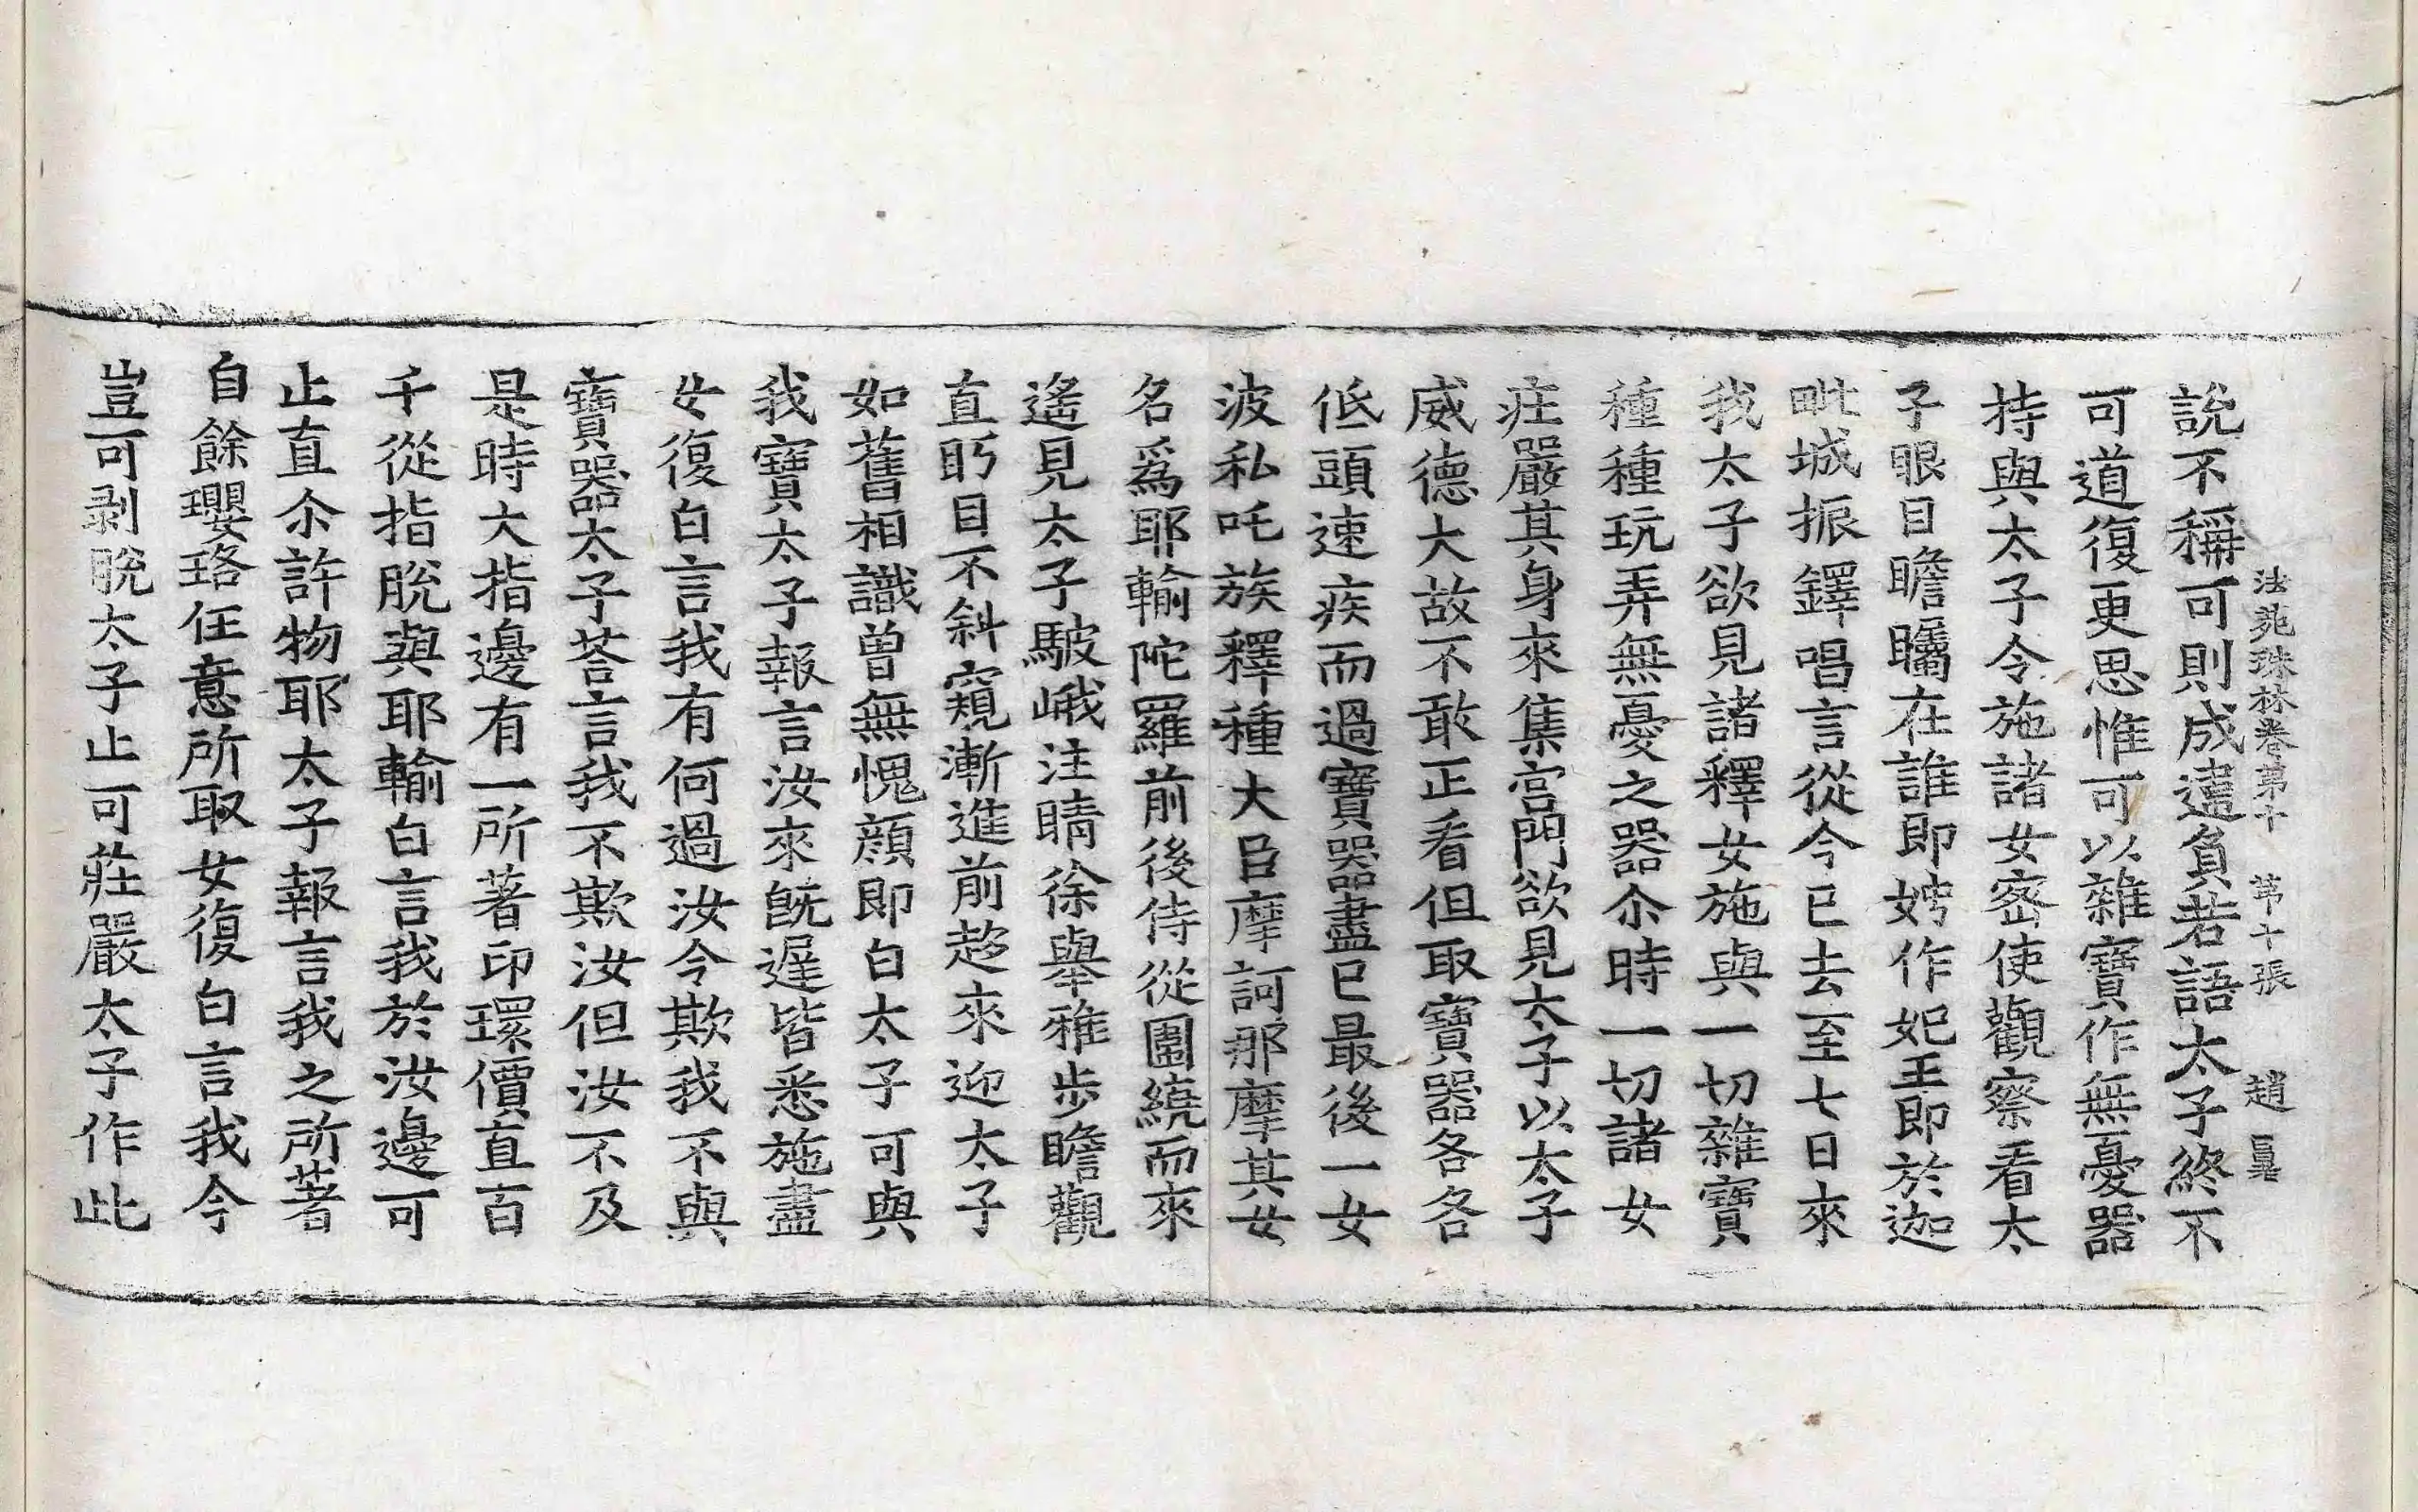 法苑珠林卷第十 第十張 趙
說不稱可則成違負若語太子終不
可道復更思惟可以雜寶作無憂器
持與太子令施諸女密使觀察看太
子眼目瞻矚在誰即娉作妃王即於迦
毗城振鐸唱言從今已去至七日來
我太子欲見諸釋女施與一切雜寶
種種玩弄無憂之器尒時一切諸女
庄嚴其身來集宮門欲見太子以太子
威德大故不敢正看但取寶器各各
低頭速疾而過寶器盡已最後一女
波私吒族釋種大臣摩訶那摩其女
名爲耶輸陀羅前後侍從圍繞而來
遙見太子駊峨注睛徐舉雅步瞻觀
直眄目不斜窺漸進前趍來迎太子
如舊相識曾無愧顔即白太子可與
我寶太子報言汝來旣遲皆悉施盡
女復白言我有何過汝今欺我不與
寶器太子荅言我不欺汝但汝不及
是時大指邊有一所著印環價直百
千從指脫與耶輸白言我於汝邊可
止直尒許物耶太子報言我之所著
自餘瓔珞任意所取女復白言我今
豈可剥脫太子止可莊嚴太子作此